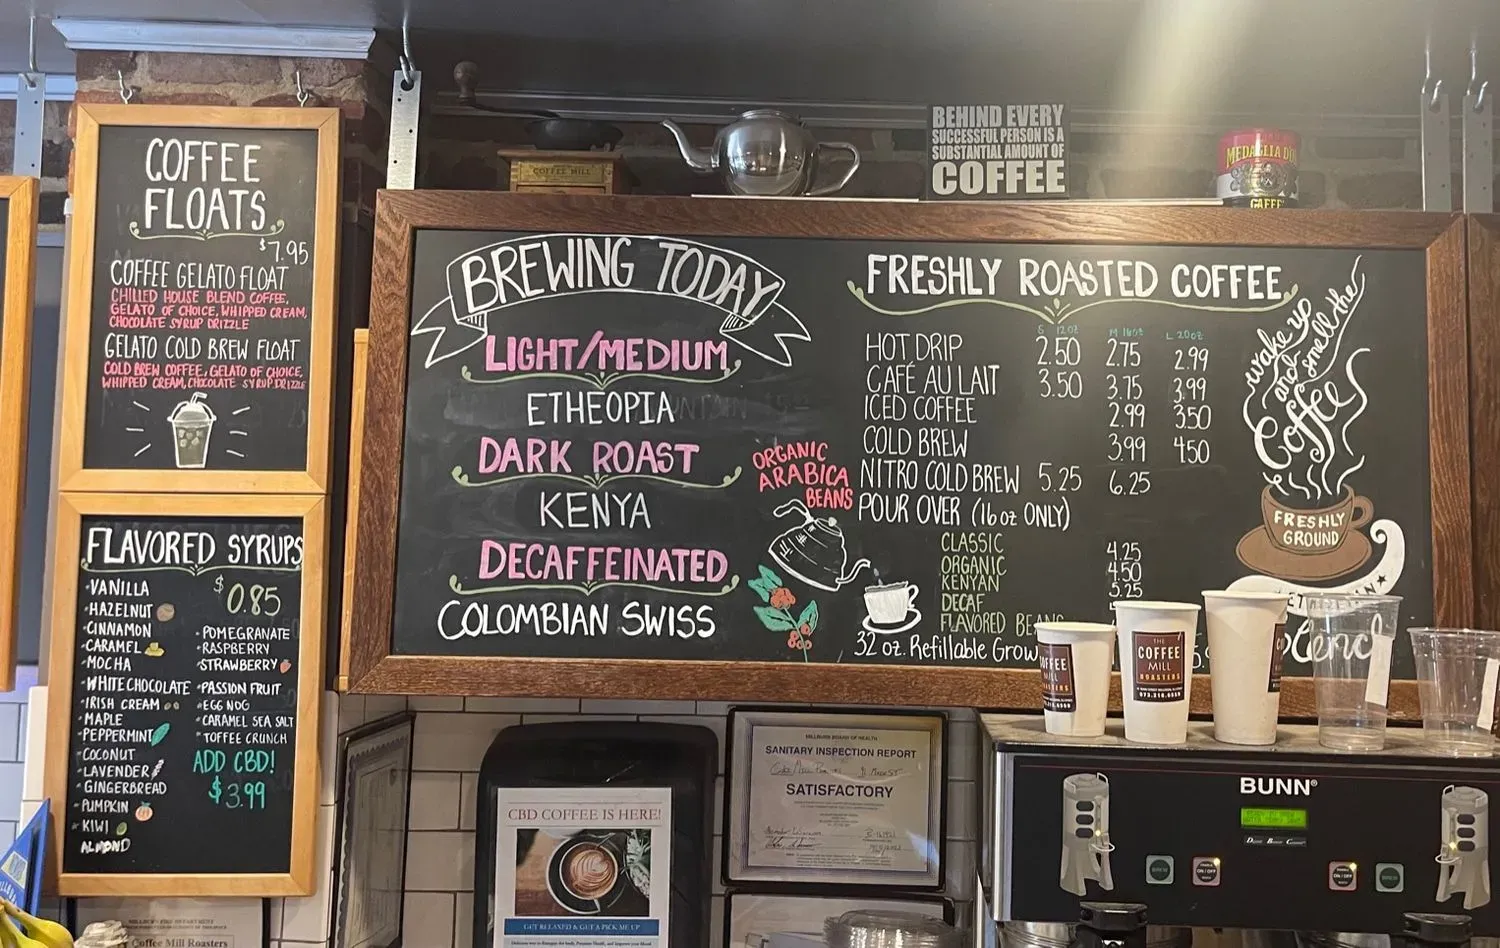 COFFEE
FLOATS
$7.95
COFFEE GELATO FLOAT
CHILLED HOUSE BLEND COFFEE,
GELATO OF CHOICE, WHIPPED CREAM,
CHOCOLATE SYRUP DRIZZLE
GELATO COLD BREW FLOAT
COLD BREW COFFEE, GELATO OF CHOICE,
WHIPPED CREAM, CHOCOLATE SYRUP DRIZZLE
FLAVORED SYRUPS
$0.85
VANILLA
HAZELNUT
CINNAMON
CARAMEL
MOCHA
WHITE CHOCOLATE
IRISH CREAM
MAPLE
PEPPERMINT
COCONUT
LAVENDER
GINGERBREAD
PUMPKIN
KIWI
ALMOND
POMEGRANATE
RASPBERRY
STRAWBERRY
PASSION FRUIT
EGG NOG
CARAMEL SEA SALT
TOFFEE CRUNCH
ADD CBD!
$3.99
COFFEE MILL
BEHIND EVERY
SUCCESSFUL PERSON IS A
SUBSTANTIAL AMOUNT OF
COFFEE
MEDAGLIA D'O
CAFFE
BREWING TODAY
LIGHT/MEDIUM
ETHEOPIA
DARK ROAST
KENYA
DECAFFEINATED
COLOMBIAN SWISS
ORGANIC
ARABICA
BEANS
FRESHLY ROASTED COFFEE
S 12oz M 16oz L 20oz
HOT DRIP 2.50 2.75 2.99
CAFÉ AU LAIT 3.50 3.75 3.99
ICED COFFEE 2.99 3.50
COLD BREW 3.99 4.50
NITRO COLD BREW 5.25 6.25
POUR OVER (16oz ONLY)
CLASSIC 4.25
ORGANIC 4.50
KENYAN 5.25
DECAF
FLAVORED BEANS
32 oz. Refillable Grow
wake up
and
smell the
Coffee
FRESHLY
GROUND
blend
COFFEE
MILL
ROASTERS
THE
COFFEE
MILL
ROASTERS
BUNN
ON/OFF
BREW
ON/OFF
BREW
CBD COFFEE IS HERE!
GET RELAXED & GET A PICK ME UP
MILLBURN BOARD OF HEALTH
SANITARY INSPECTION REPORT
SATISFACTORY
Coffee Mill Roasters